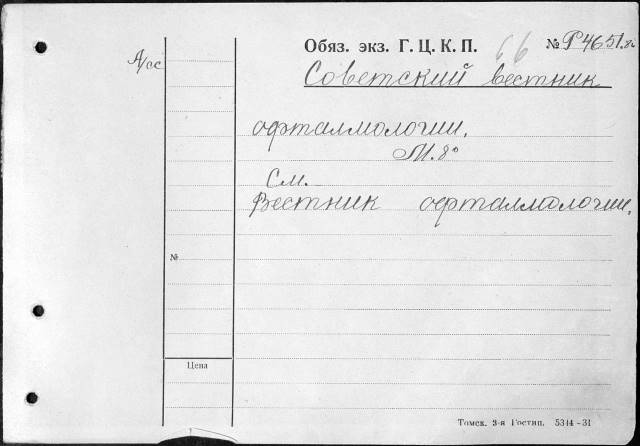 Обяз. экз. Г. Ц. К. П. 66 № Р4651.8°
А/сс
Советский вестник
офталмологии.
М. 8°
См.
Вестник офталмологии.
№
Цена
Томск. 3-я Гостип. 5314-31